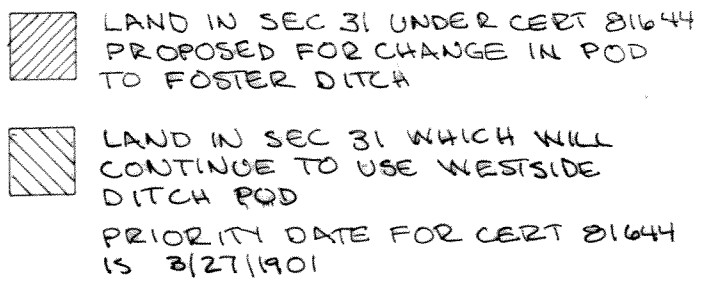 LAND IN SEC 31 UNDER CERT 81644
PROPOSED FOR CHANGE IN POD
TO FOSTER DITCH
LAND IN SEC 31 WHICH WILL
CONTINUE TO USE WESTSIDE
DITCH POD
PRIORITY DATE FOR CERT 81644
IS 3/27/1901